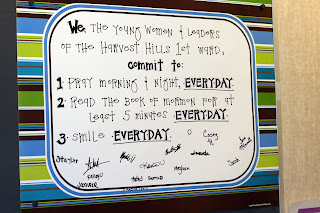 We, the Young Women & Leaders
of the Harvest Hills 1st Ward,
commit to:
1. Pray morning & night, EVERYDAY.
2. Read the Book of Mormon for at
least 5 minutes EVERYDAY.
3. Smile EVERYDAY.